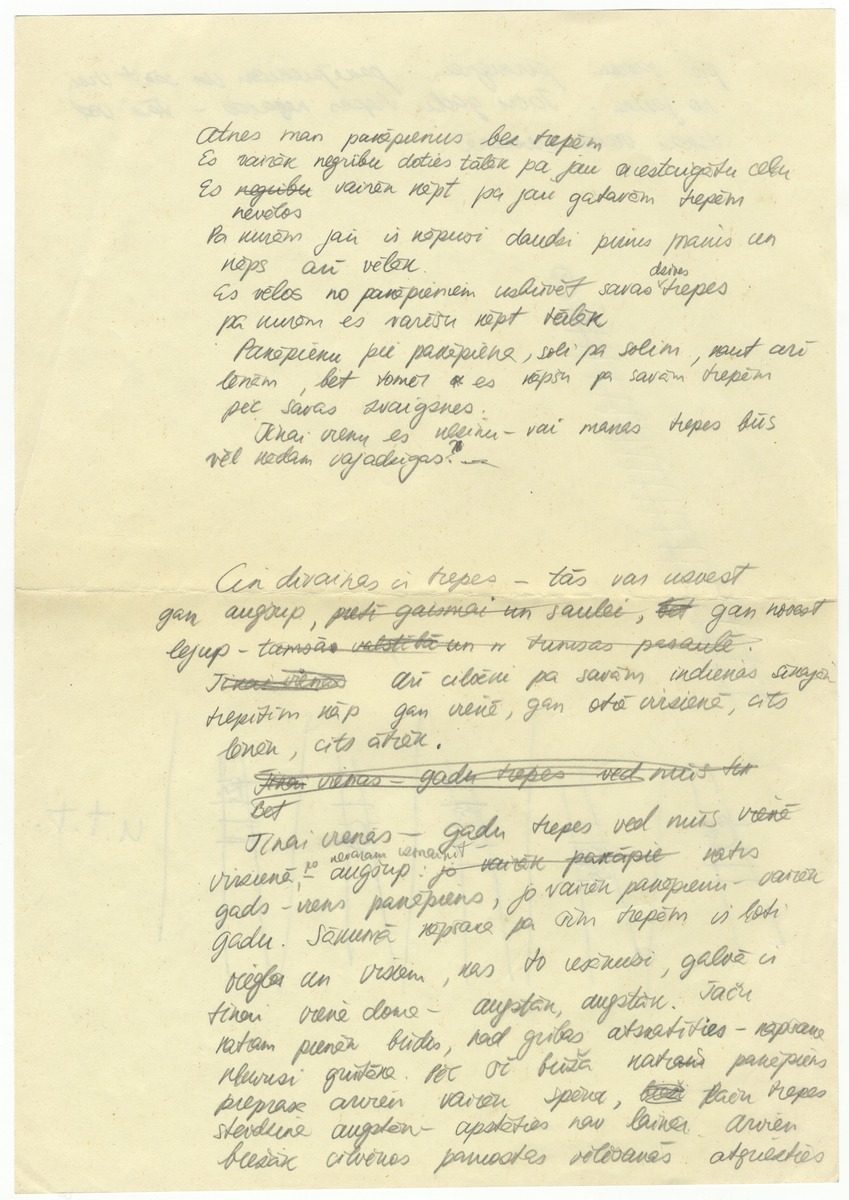 Atnes man pakāpienus bez trepēm
Es vairāk negribu doties tālāk pa jau aizstaigātu ceļu
Es negribu vairāk kāpt pa jau gatavām trepēm
nevēlos
Pa kurām jau ir kāpuši daudzi pirms manis un
kāps arī vēlāk.
dzīves
Es vēlos no pakāpieniem uzbūvēt savas trepes
pa kurām es varēšu kāpt tālāk
Pakāpienu pie pakāpiena, soli pa solim, kaut arī
lēnām, bet tomēr es kāpšu pa savām trepēm
pēc savas zvaigznes.
Tikai vienu es nezinu – vai manas trepes būs
vēl kādam vajadzīgas?
Cik dīvainas ir trepes – tās var uzvest
gan augšup, pretī gaismai un saulei, bet gan novest
lejup – tumsās valstībā un tumsas pasaulē.
Tikai vienas arī cilvēki pa savām ikdienas sīkajām
trepītēm kāp gan vienā, gan otrā virzienā, cits
lēnāk, cits ātrāk.
Tikai vienas – gadu trepes ved mūs tik
Bet
Tikai vienas – gadu trepes ved mūs vienā
no nevaram izmainīt
virzienā, – augšup: jo vairāk pakāpie katrs
gads – viens pakāpiens, jo vairāk pakāpienu – vairāk
gadu. Sākumā kāpšana pa šīm trepēm ir ļoti
viegla un visiem, kas to uzsākuši, galvā ir
tikai viena doma – augstāk, augstāk. Taču
katram pienāk brīdis, kad gribas atskatīties – kāpšana
kļuvusi grūtāka. Pēc šī brīža katrs pakāpiens
pieprasa arvien vairāk spēka, taču trepes
steidzina augstāk – apstāties nav laika. Arvien
biežāk cilvēkos pamostas vēlēšanās atgriezties